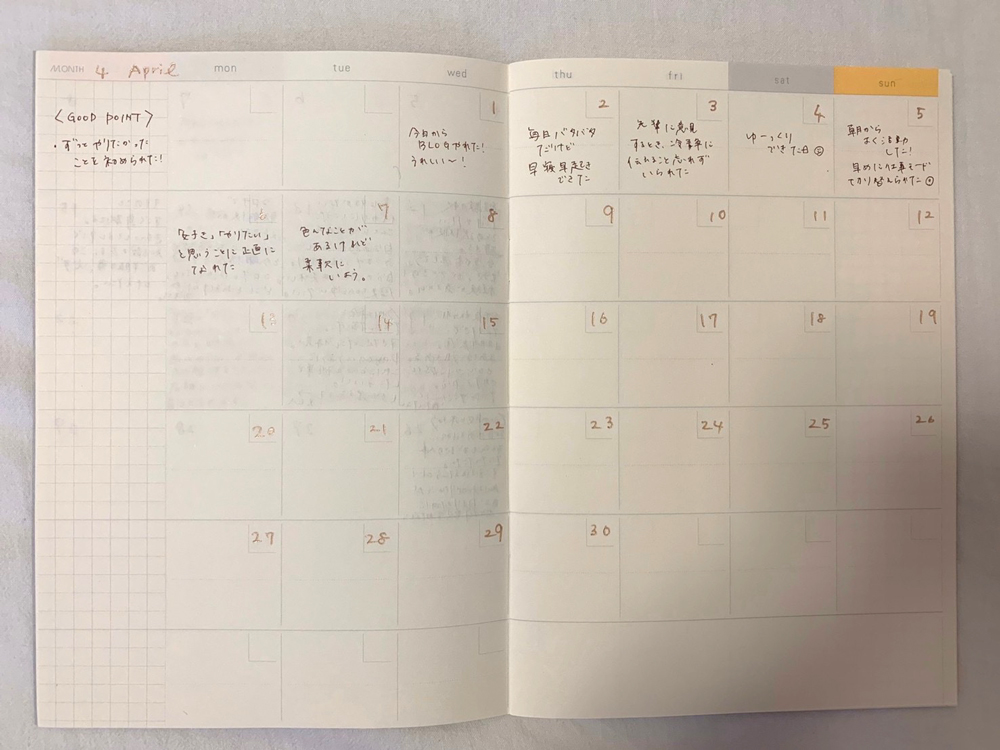 MONTH 4 April mon tue wed thu fri sat sun
〈GOOD POINT〉
・ずっとやりたかった
ことを始められた!
1
今日から
BLOGやれた!
うれしい〜!
2
毎日バタバタ
だけど
早寝早起き
できた
3
先輩に意見
するとき、冷静に
伝えること忘れず
いられた
4
ゆーっくり
できた日☺
5
朝から
よく活動
した!
早めに仕事モード
6
「好き」「やりたい」
と思うことに正直に
なれた
7
色んなことが
あるけれど
柔軟に
いよう。
8
9
10
11
12
13
14
15
16
17
18
19
20
21
22
23
24
25
26
27
28
29
30